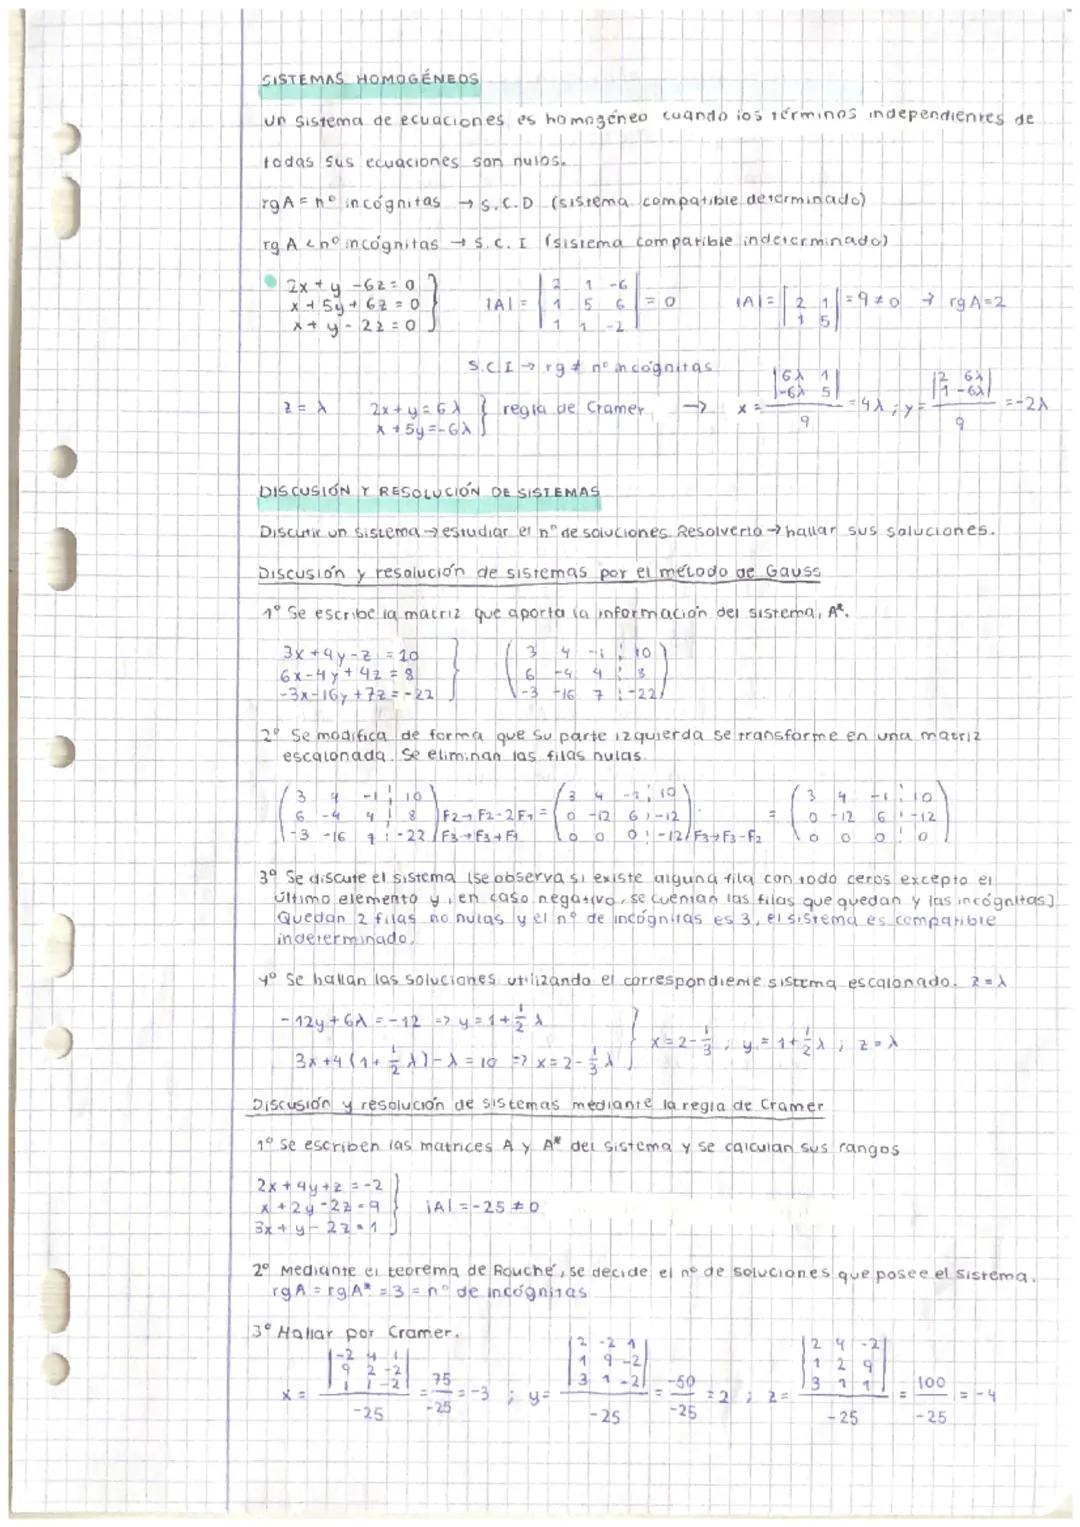 SISTEMAS HOMOGÉNEOS
Un sistema de ecuaciones es homogéneo cuando los términos independientes de
todas sus ecuaciones son nulos.
rgA = nº incógnitas → S.C.D (sistema compatible determinado)
rg A < nº incógnitas → S.C.I (sistema compatible indeterminado)
2x + y - 6z = 0
x + 5y + 6z = 0
x + y - 2z = 0
|A| = | 2 1 -6 | 1 5 6 | 1 1 -2 | = 0
|A| = | 2 1 | 1 5 | = 9 ≠ 0 → rg A = 2
S.C.I → rg ≠ nº incógnitas
z = λ 2x + y = 6λ
x + 5y = -6λ } regla de Cramer →
x = | 6λ 1 | -6λ 5 | / 9 = 4λ ; y = | 2 6λ | 1 -6λ | / 9 = -2λ
DISCUSIÓN Y RESOLUCIÓN DE SISTEMAS
Discutir un sistema → estudiar el nº de soluciones. Resolverlo → hallar sus soluciones.
Discusión y resolución de sistemas por el método de Gauss
1º Se escribe la matriz que aporta la información del sistema, A*.
3x + 4y - z = 10 ( 3 4 -1 ¦ 10 )
6x - 4y + 4z = 8 ( 6 -4 4 ¦ 8 )
-3x - 16y + 7z = -22 ( -3 -16 7 ¦ -22 )
2º Se modifica de forma que su parte izquierda se transforme en una matriz
escalonada. Se eliminan las filas nulas.
( 3 4 -1 ¦ 10 ) ( 3 4 -1 ¦ 10 ) ( 3 4 -1 ¦ 10 )
( 6 -4 4 ¦ 8 ) F2→F2-2F1 = ( 0 -12 6 ¦ -12 ) = ( 0 -12 6 ¦ -12 )
( -3 -16 7 ¦ -22 ) F3→F3+F1 ( 0 0 0 ¦ -12 ) F3→F3-F2 ( 0 0 0 ¦ 0 )
3º Se discute el sistema (se observa si existe alguna fila con todo ceros excepto el
último elemento y, en caso negativo, se cuentan las filas que quedan y las incógnitas)
Quedan 2 filas no nulas y el nº de incógnitas es 3, el sistema es compatible
indeterminado.
4º Se hallan las soluciones utilizando el correspondiente sistema escalonado. z = λ
-12y + 6λ = -12 => y = 1 + 1/2 λ
3x + 4 (1 + 1/2 λ) - λ = 10 => x = 2 - 1/3 λ } x = 2 - 1/3 ; y = 1 + 1/2 λ ; z = λ
Discusión y resolución de sistemas mediante la regla de Cramer
1º Se escriben las matrices A y A* del sistema y se calculan sus rangos
2x + 4y + z = -2
x + 2y - 2z = 9 |A| = -25 ≠ 0
3x + y - 2z = 1
2º Mediante el teorema de Rouché, se decide el nº de soluciones que posee el sistema.
rgA = rgA* = 3 = nº de incógnitas
3º Hallar por Cramer.
x = | -2 4 1 | 9 2 -2 | 1 1 -2 | / -25 = 75 / -25 = -3 ; y = | 2 -2 1 | 1 9 -2 | 3 1 -2 | / -25 = -50 / -25 = 2 ; z = | 2 4 -2 | 1 2 9 | 3 1 1 | / -25 = 100 / -25 = -4